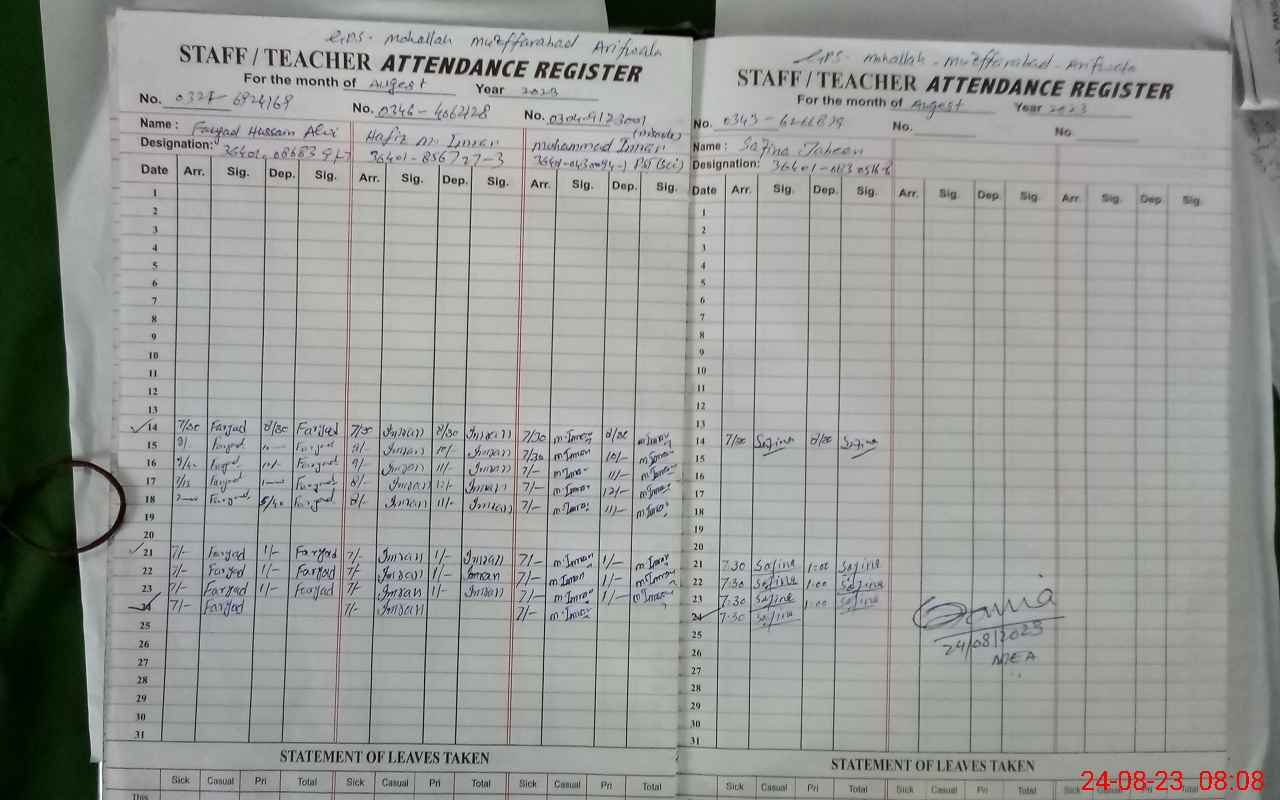 GPS- Mohallah Muzffarabad Arifwala
STAFF / TEACHER ATTENDANCE REGISTER
For the month of Augest Year 2023
No. No. 0346- No. 
Name : Faryad Hussain Hafiz M. Imran Muhammad Imran
Designation:
Date Arr. Sig. Dep. Sig. Arr. Sig. Dep. Sig. Arr. Sig. Dep. Sig.
1
2
3
4
5
6
7
8
9
10
11
12
13
14 7/30 Faryad 8/30 Faryad 7/30 Imran 8/30 Imran 7/30 m.Imran 8/30 m.Imran
15 Faryad Faryad Imran 10/- Imran 7/30 m.Imran 10/- m.Imran
16 Faryad Faryad Imran 11/- Imran 7/- m.Imran 11/- m.Imran
17 Faryad Faryad 8/- Imran Imran 7/- m.Imran 12/- m.Imran
18 Faryad Faryad 8/- Imran 11/- Imran 7/- m.Imran 11/- m.Imran
19
20
21 7/- Faryad 1/- Faryad 7/- Imran 1/- Imran 7/- m.Imran 1/- m.Imran
22 7/- Faryad 1/- Faryad 7/- Imran 1/- Imran 7/- m.Imran 1/- m.Imran
23 7/- Faryad 1/- Faryad 7/- Imran 1/- Imran 7/- m.Imran 1/- m.Imran
24 7/- Faryad 7/- Imran 7/- m.Imran
25
26
27
28
29
30
31
STATEMENT OF LEAVES TAKEN
Sick Casual Pri Total Sick Casual Pri Total Sick Casual Pri Total
This
GPS- Mohallah- Muzffarabad- Arifwala
STAFF / TEACHER ATTENDANCE REGISTER
For the month of Augest Year 2023
No. 0343- No. No.
Name : Safina
Designation:
Date Arr. Sig. Dep. Sig. Arr. Sig. Dep. Sig. Arr. Sig. Dep. Sig.
1
2
3
4
5
6
7
8
9
10
11
12
13
14 7/30 Safina 8/30 Safina
15
16
17
18
19
20
21 7:30 Safina 1:00 Safina
22 7:30 Safina 1:00 Safina
23 7:30 Safina 1:00 Safina
24 7:30 Safina
25
24/08/2023
MEA
26
27
28
29
30
31
STATEMENT OF LEAVES TAKEN
Sick Casual Pri Total Sick Casual Pri Total Sick Casual Pri Total
24-08-23 08:08